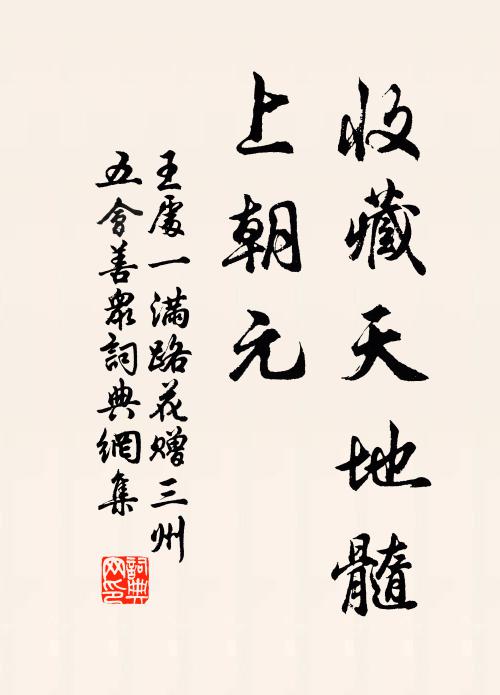 收藏天地髓
上朝元
王處一滿路花贈三州
五會善眾詞典網集
詞典
网印